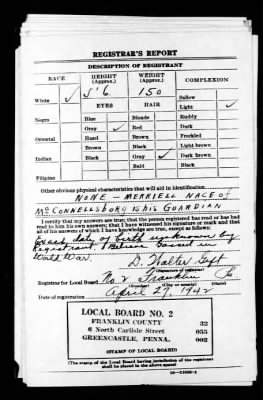 REGISTRAR'S REPORT
DESCRIPTION OF REGISTRANT
RACE HEIGHT (Approx.) WEIGHT (Approx.) COMPLEXION
5' 6 150
White ✓ EYES HAIR Sallow
Light ✓
Negro Blue Blonde Ruddy
Gray ✓ Red Dark
Oriental Hazel Brown Freckled
Brown Black Light brown
Indian Black Gray ✓ Dark brown
Bald Black
Filipino
Other obvious physical characteristics that will aid in identification
NONE - MERRIELL NACE OF
McCONNELLSBURG IS HIS GUARDIAN
I certify that my answers are true; that the person registered has read or has had
read to him his own answers; that I have witnessed his signature or mark and that
all of his answers of which I have knowledge are true, except as follows:
Exact date of birth unknown by
Registrant. Served in
World War.
D. Walter
(Signature of registrar)
Registrar for Local Board No. 2 Franklin Pa
(Number) (City or county) (State)
Date of registration April 27, 1942
LOCAL BOARD NO. 2
FRANKLIN COUNTY 32
6 North Carlisle Street 055
GREENCASTLE, PENNA. 002
(STAMP OF LOCAL BOARD)
(The stamp of the Local Board having jurisdiction of the registrant
shall be placed in the above space)